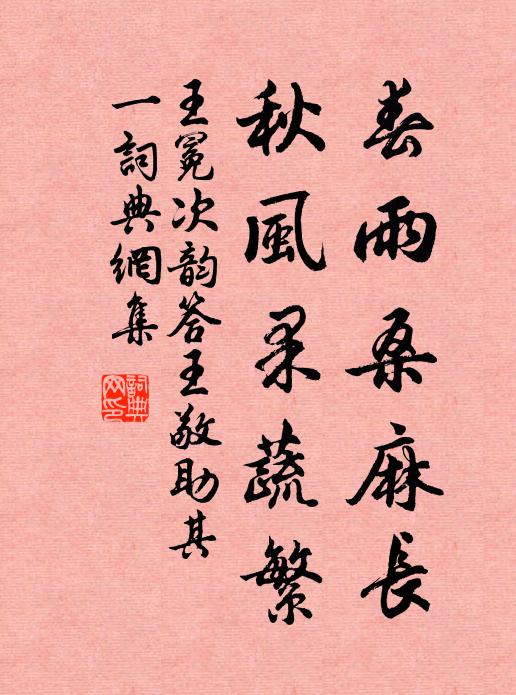 春雨桑麻長
秋風果蔬繁
王冕次韵答王敬助其
一詞典網集
詞典
网印